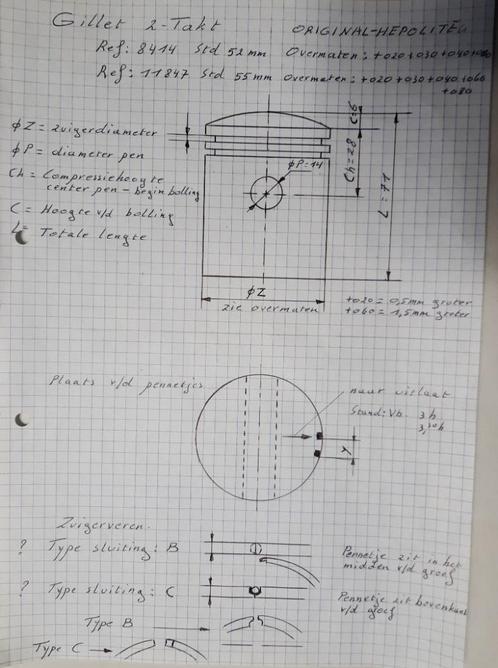 Gillet 2-Takt ORIGINAL-HEPOLITE
Ref: 8414 Std 52mm Overmaten: +020+030+040+060
Ref: 11847 Std 55mm overmaten: +020+030+040+060
+080
ϕZ = zuigerdiameter
ϕP = diameter pen
Ch = Compressiehoogte
center pen - begin bolling
C = Hoogte v/d bolling
L = Totale lengte
C=6
Ch=28
L=71
ϕP=14
ϕZ
zie overmaten
+020 = 0,5mm groter
+060 = 1,5mm groter
Plaats v/d pennetjes
naar uitlaat
Stand: Vb. 3h
3,30h
Y
Zuigerveren.
? Type sluiting: B
Pennetje zit in het
midden v/d groef
? Type sluiting: C
Pennetje zit bovenkant
v/d groef
Type B
Type C